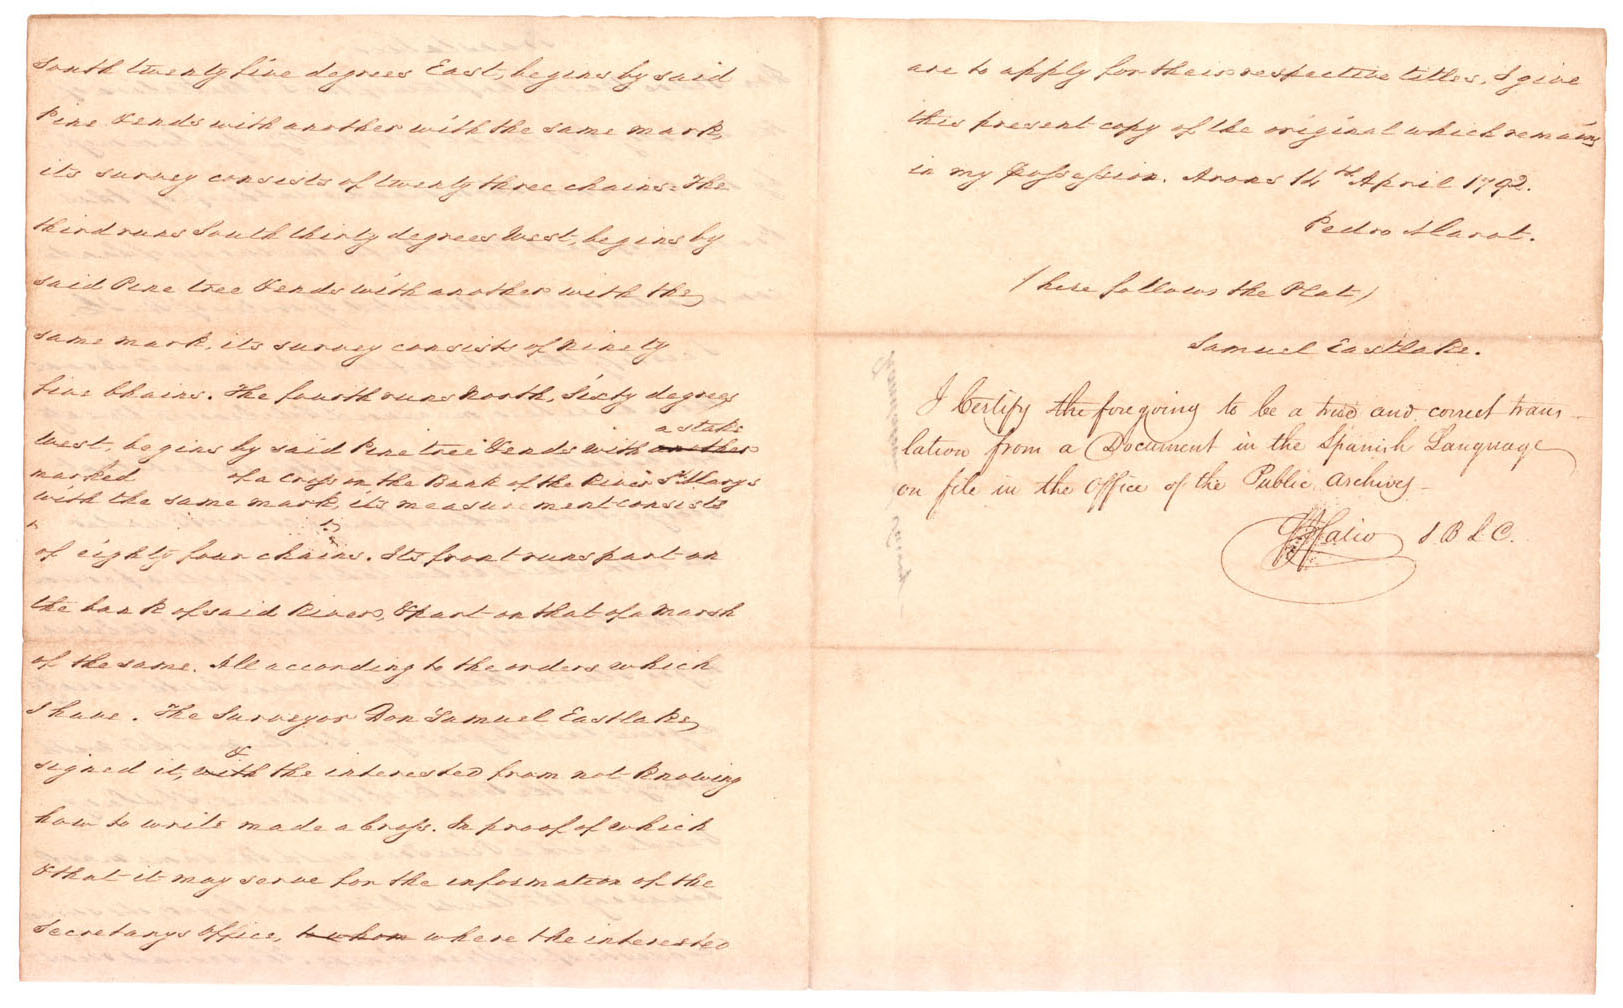 South twenty five degrees East, begins by said
Pine & ends with another with the same mark,
its survey consists of twenty three chains. The
third runs South thirty degrees West, begins by
said Pine tree & ends with another with the
same mark, its survey consists of ninety
five Chains. The fourth runs North, Sixty degrees
a stake
West, begins by said Pine tree & ends with another
marked of a Cross on the Bank of the River St. Marys
with the same mark, its measurement consists
of eighty four chains. Its front runs part on
the bank of said River, & part on that of a Marsh
of the same. All according to the orders which
I have. The Surveyor Don Samuel Eastlake,
&
signed it, with the interested from not knowing
how to write made a Cross. In proof of which
& that it may serve for the information of the
Secretarys Office, to whom where the interested
are to apply for their respective titles, I give
this present copy of the original which remains
in my Possession. 14th April 1792.
Pedro
(here follows the Plat)
Samuel Eastlake.
I Certify the foregoing to be a true and correct trans-
lation from a Document in the Spanish Language
on file in the Office of the Public Archives_